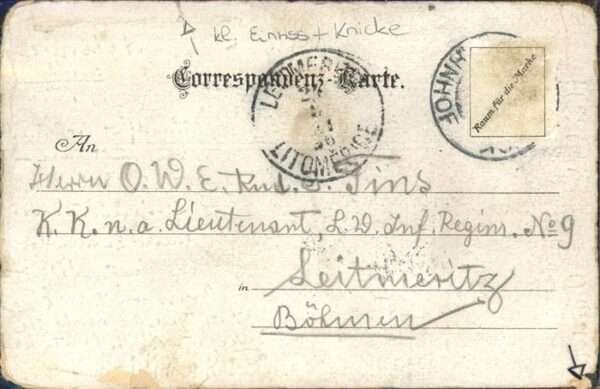 kl. Einriss + Knicke
Correspondenz-Karte.
LEITMERITZ
LITOMĚŘICE
JOHNH
Raum für die Marke
An
Herrn O. W. E. Rud. Tins
K. K. n. a. Lieutenant, L. W. Inf. Regim. No 9
in Leitmeritz
Böhmen